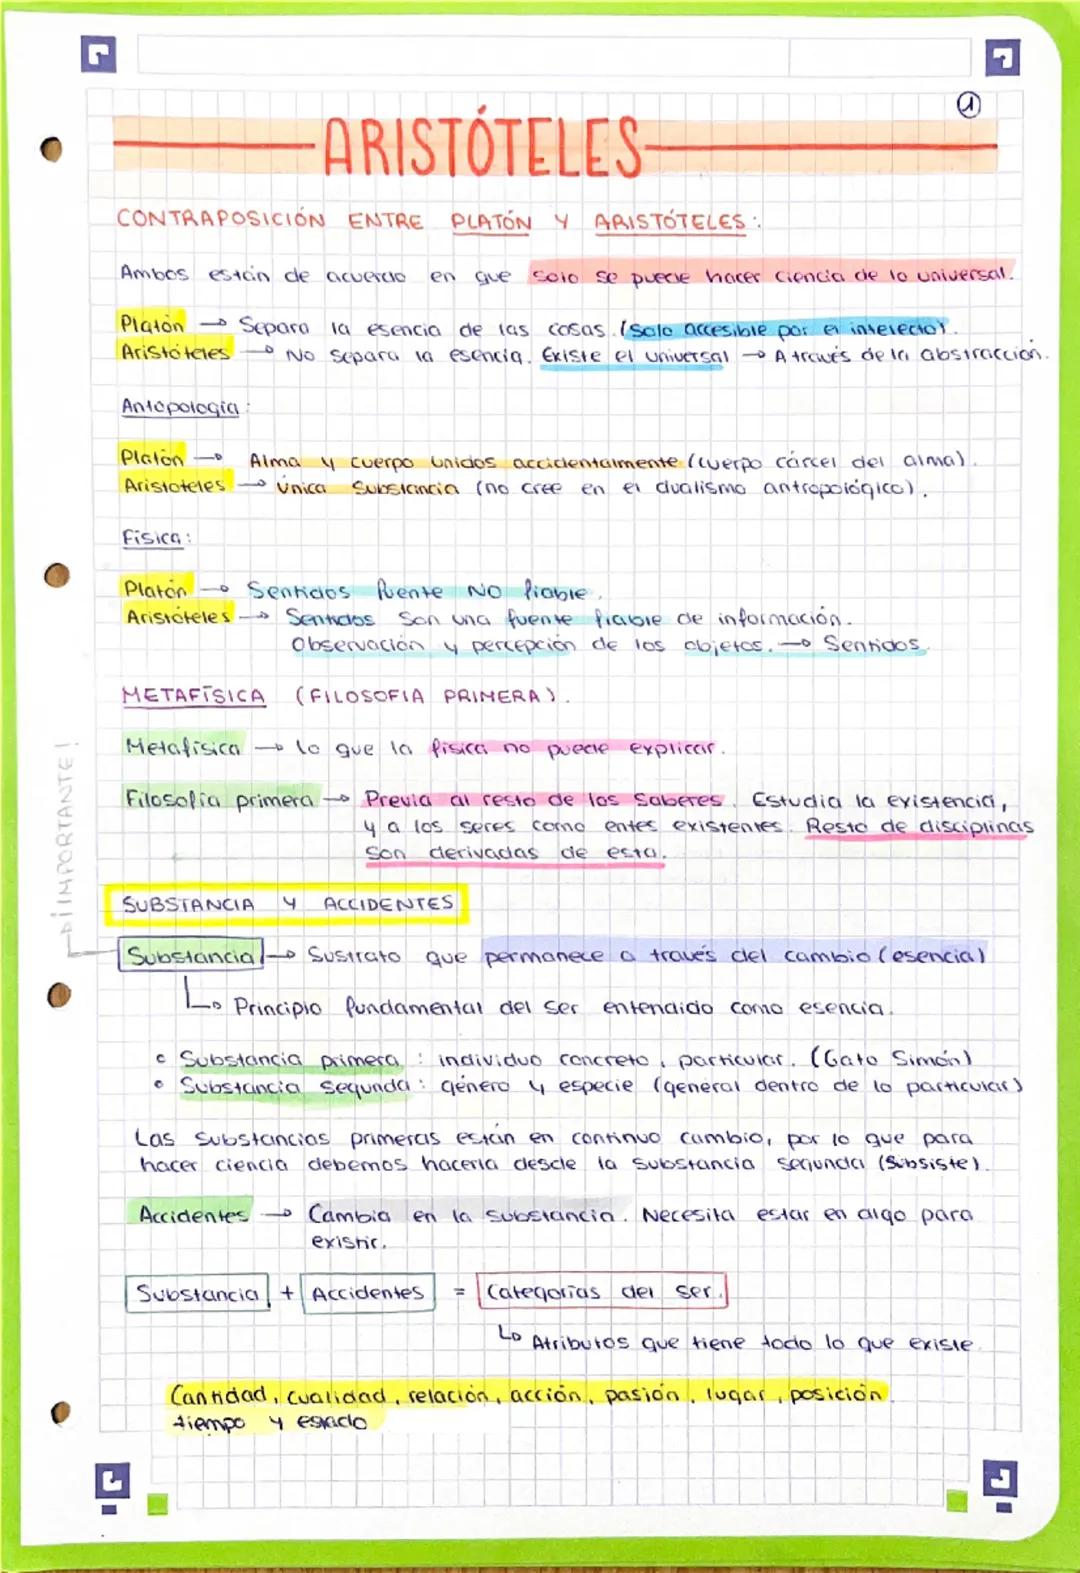 ①
ARISTÓTELES
CONTRAPOSICIÓN ENTRE PLATÓN Y ARISTÓTELES:
Ambos están de acuerdo en que solo se puede hacer ciencia de lo universal.
Platón → Separa la esencia de las cosas. (Solo accesible por el intelecto).
Aristóteles → No separa la esencia. Existe el universal → A través de la abstracción.
Antopología:
Platón → Alma y cuerpo unidos accidentalmente (cuerpo cárcel del alma).
Aristoteles → Única Substancia (no cree en el dualismo antropológico).
Física:
Platón → Sentidos fuente NO fiable.
Aristóteles → Sentidos son una fuente fiable de información.
Observación y percepción de los objetos. → Sentidos.
METAFÍSICA (FILOSOFIA PRIMERA).
Metafísica → lo que la física no puede explicar.
Filosofía primera → Previa al resto de los saberes. Estudia la existencia,
y a los seres como entes existentes. Resto de disciplinas
son derivadas de esta.
¡¡IMPORTANTE!
SUBSTANCIA Y ACCIDENTES
Substancia → Sustrato que permanece a través del cambio (esencia)
↳ Principio fundamental del ser entendido como esencia.
• Substancia primera: individuo concreto, particular. (Gato Simón)
• Substancia segunda: género y especie (general dentro de lo particular)
Las substancias primeras están en continuo cambio, por lo que para
hacer ciencia debemos hacerla desde la substancia segunda (Subsiste).
Accidentes → Cambia en la substancia. Necesita estar en algo para
existir.
Substancia + Accidentes = Categorías del ser.
↳ Atributos que tiene todo lo que existe.
Cantidad, cualidad, relación, acción, pasión, lugar, posición
tiempo y estado